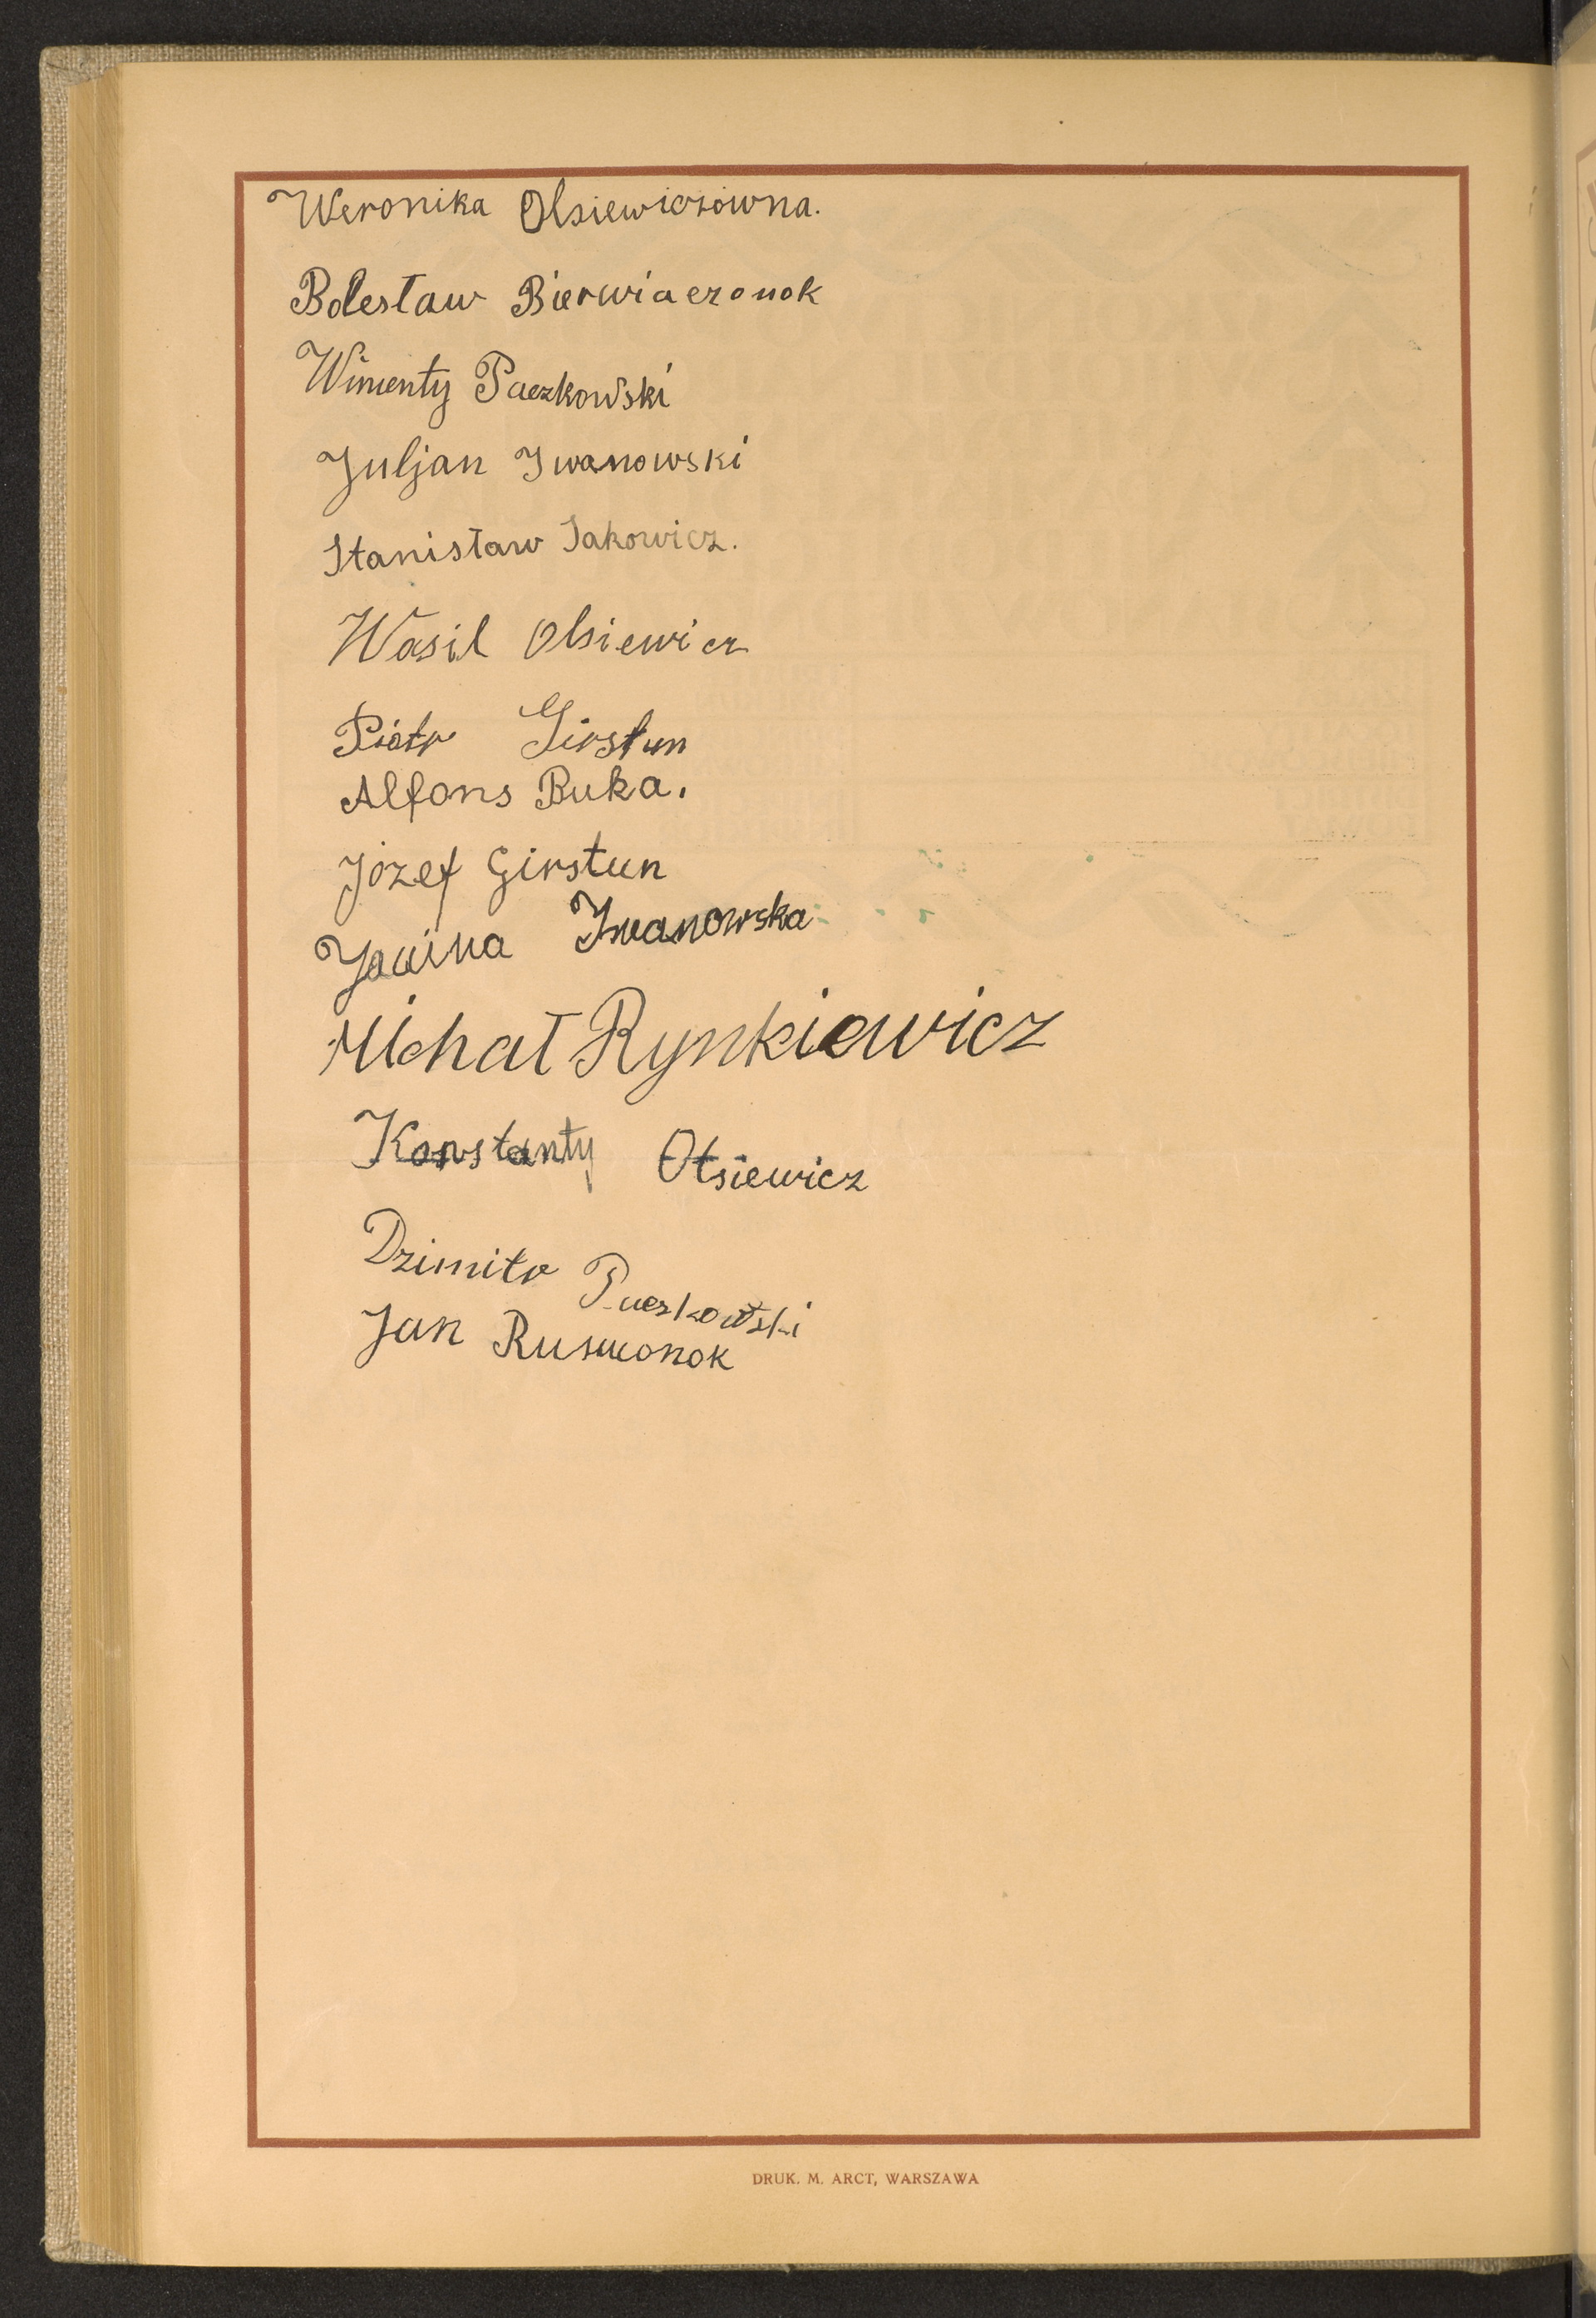 Weronika Olsiewiczówna.
Bolesław Bierwiaczonok
Wincenty Paczkowski
Juljan Iwanowski
Stanisław Jakowicz.
Wasil Olsiewicz
Piotr Girstun
Alfons Buka.
Józef Girstun
Janina Iwanowska
Michał Rynkiewicz
Konstanty Olsiewicz
Dzimitr Paczkowski
Jan
DRUK. M. ARCT, WARSZAWA